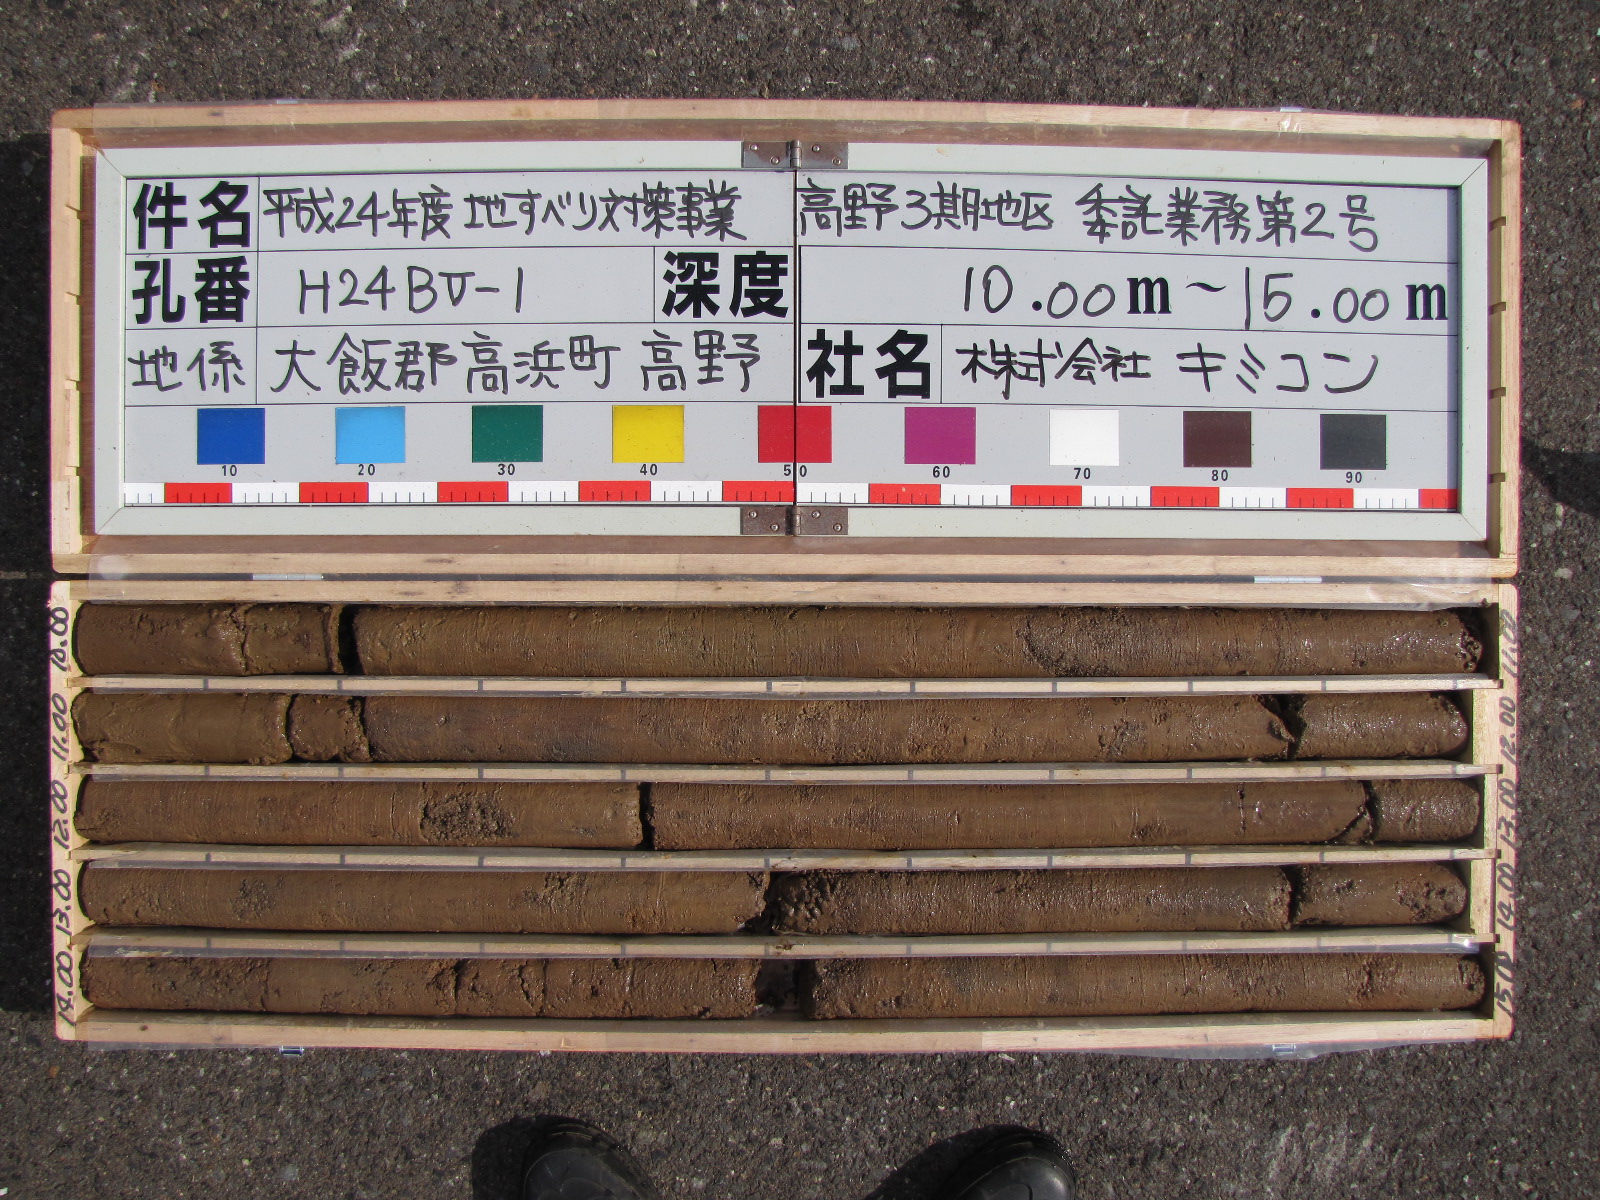 件名 平成24年度 地すべり対策事業 高野3期地区 委託業務第2号
孔番 H24BV-1 深度 10.00m～15.00m
地係 大飯郡高浜町 高野 社名 株式会社 キミコン
10 20 30 40 50 60 70 80 90
10.00 11.00
11.00 12.00
12.00 13.00
13.00 14.00
14.00 15.00